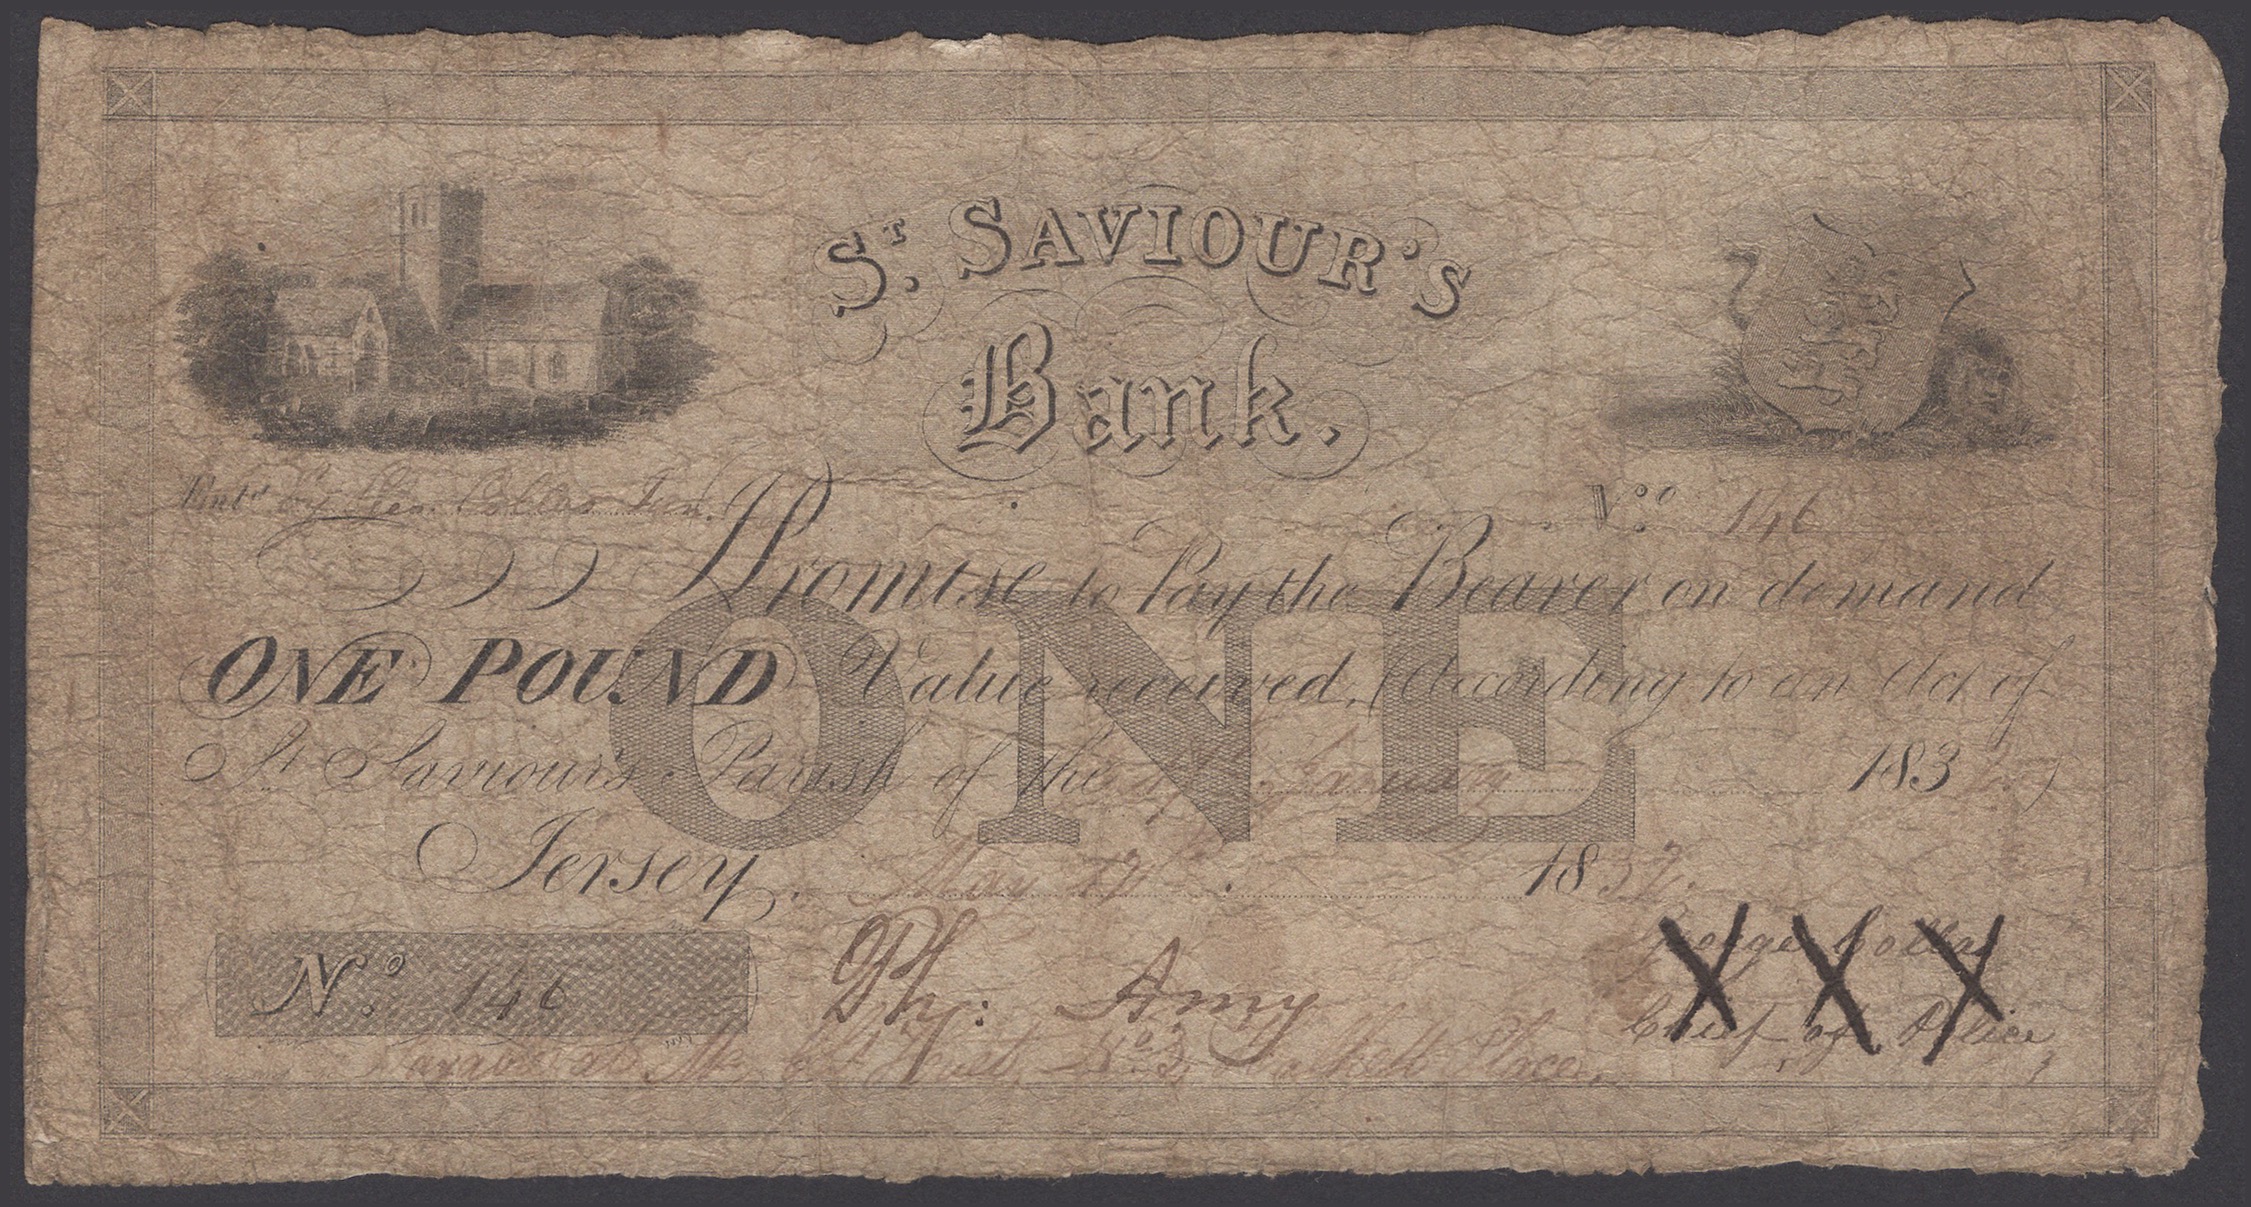 St. SAVIOUR'S
Bank.
Entd. by Geo. Collas Jun.
No. 146
I Promise to Pay the Bearer on demand
ONE POUND Value received, (According to an Act of
St. Saviour's Parish of the January 183
ONE
Jersey, May 17 1837.
No. 146
Ph: Amy
George Collas
Chief of Police
Payable at Mr. No. 3,  Place.
XXX